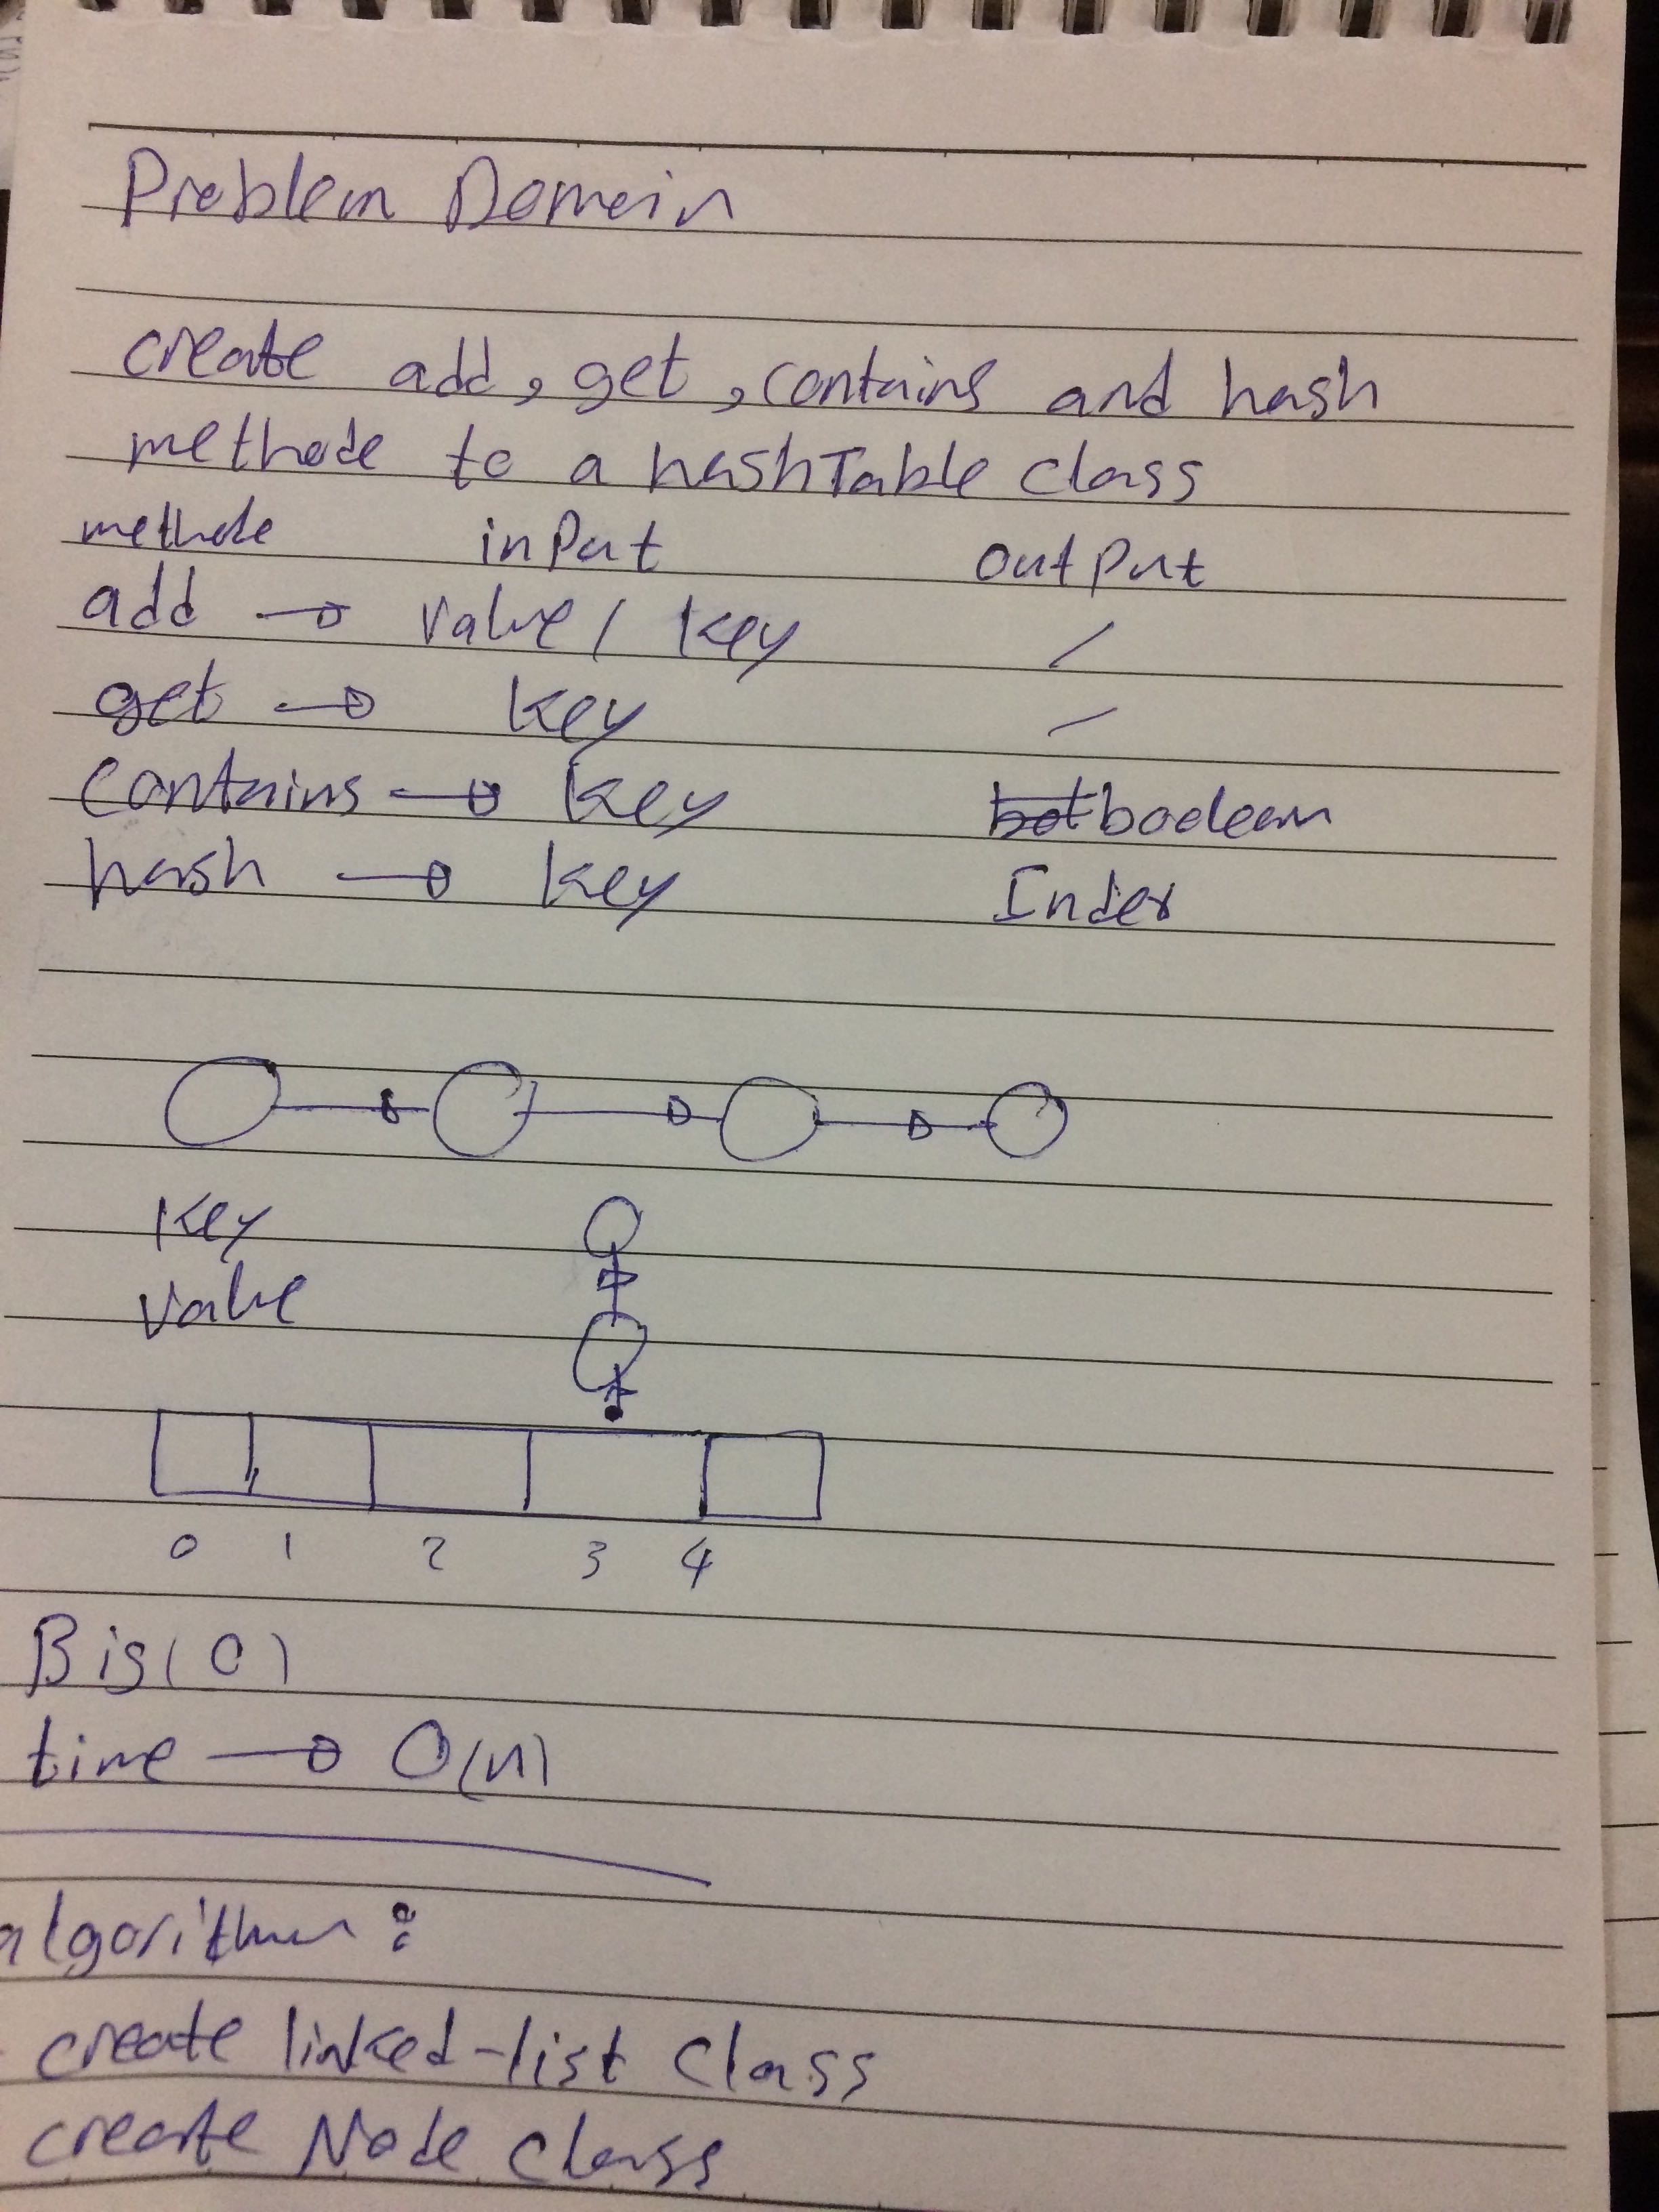 Problem Domain
create add, get, contains and hash
methode to a hashTable class
methode input output
add → value / key /
get → key /
contains → key bot boolean
hash → key Index
key
value
0 1 2 3 4
Big(O)
time → O(n)
algorithm :
create linked-list class
create Node class